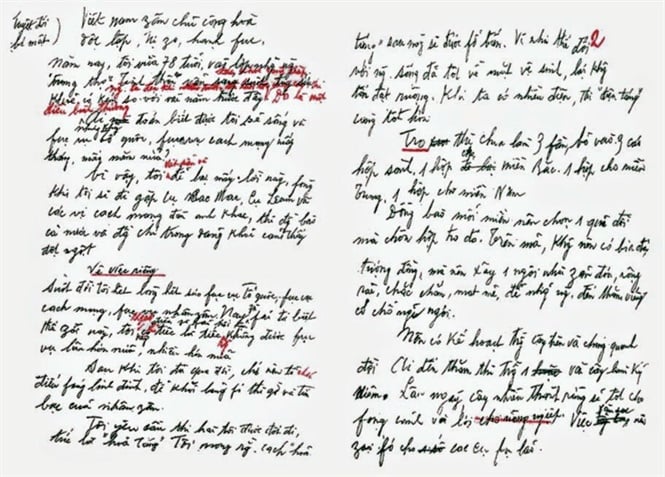 Tuyệt đối
bí mật
Việt nam zân chủ cộng hoà
độc lập, tự zo, hạnh fúc.
Năm nay, tôi vừa 78 tuổi, vào lớp những ng
trung thọ. Tinh thần vẫn
khoẻ so với vài năm trước đây. Đó là một
điều bình thường
biết được tôi sẽ sống và
fục vụ tổ quốc, fục vụ cách mạng mấy
tháng, mấy năm nữa
Vì vậy, tôi để lại mấy lời này, fòng
khi tôi sẽ đi gặp cụ Các Mác, cụ Lênin và
các vị cách mạng đàn anh khác, thì đồng bào
cả nước và đ/c trong đảng khỏi cảm thấy
đột ngột
Về việc riêng
Suốt đời tôi hết lòng hết sức fục vụ tổ quốc, fục vụ
cách mạng, fục vụ nhân zân. Nay fải từ biệt
thế zới này, tôi không có điều gì fải hối hận
chỉ tiếc là tiếc không được fục
vụ lâu hơn nữa, nhiều hơn nữa
Sau khi tôi đã qua đời, chớ nên tổ chức
điếu fúng linh đình, để khỏi lãng fí thì zờ và tiền
bạc của nhân zân.
Tôi yêu cầu thi hài tôi được đốt đi,
tức là "hoả táng". Tôi mong rằng cách "hoả
táng" sau này sẽ được fổ biến. Vì như thế đối 2
với ng sống đã tốt về mặt vệ sinh, lại khg
tốn đất ruộng. Khi ta có nhiều điện, thì "điện táng"
càng tốt hơn
Tro thì chia làm 3 fần, bỏ vào 3 cái
hộp sành, 1 hộp cho miền Bắc. 1 hộp cho miền
Trung, 1 hộp cho miền Nam
Đồng bào mỗi miền nên chọn 1 quả đồi
mà chôn hộp tro đó. Trên mả, khg nên có bia đá
tượng đồng, mà nên xây 1 ngôi nhà zản đơn, rộng
rãi, chắc chắn, mát mẻ, để những ng đến thăm viếng
có chỗ nghỉ ngơi.
Nên có kế hoạch trồng cây trên và chung quanh
đồi. Ai đến thăm thì trồng 1 vài cây làm kỷ
niệm. Lâu ngày, cây nhiều thành rừng sẽ tốt cho
fong cảnh và lợi cho nông nghiệp. Việc săn sóc
zao fó cho các cụ fụ lão.